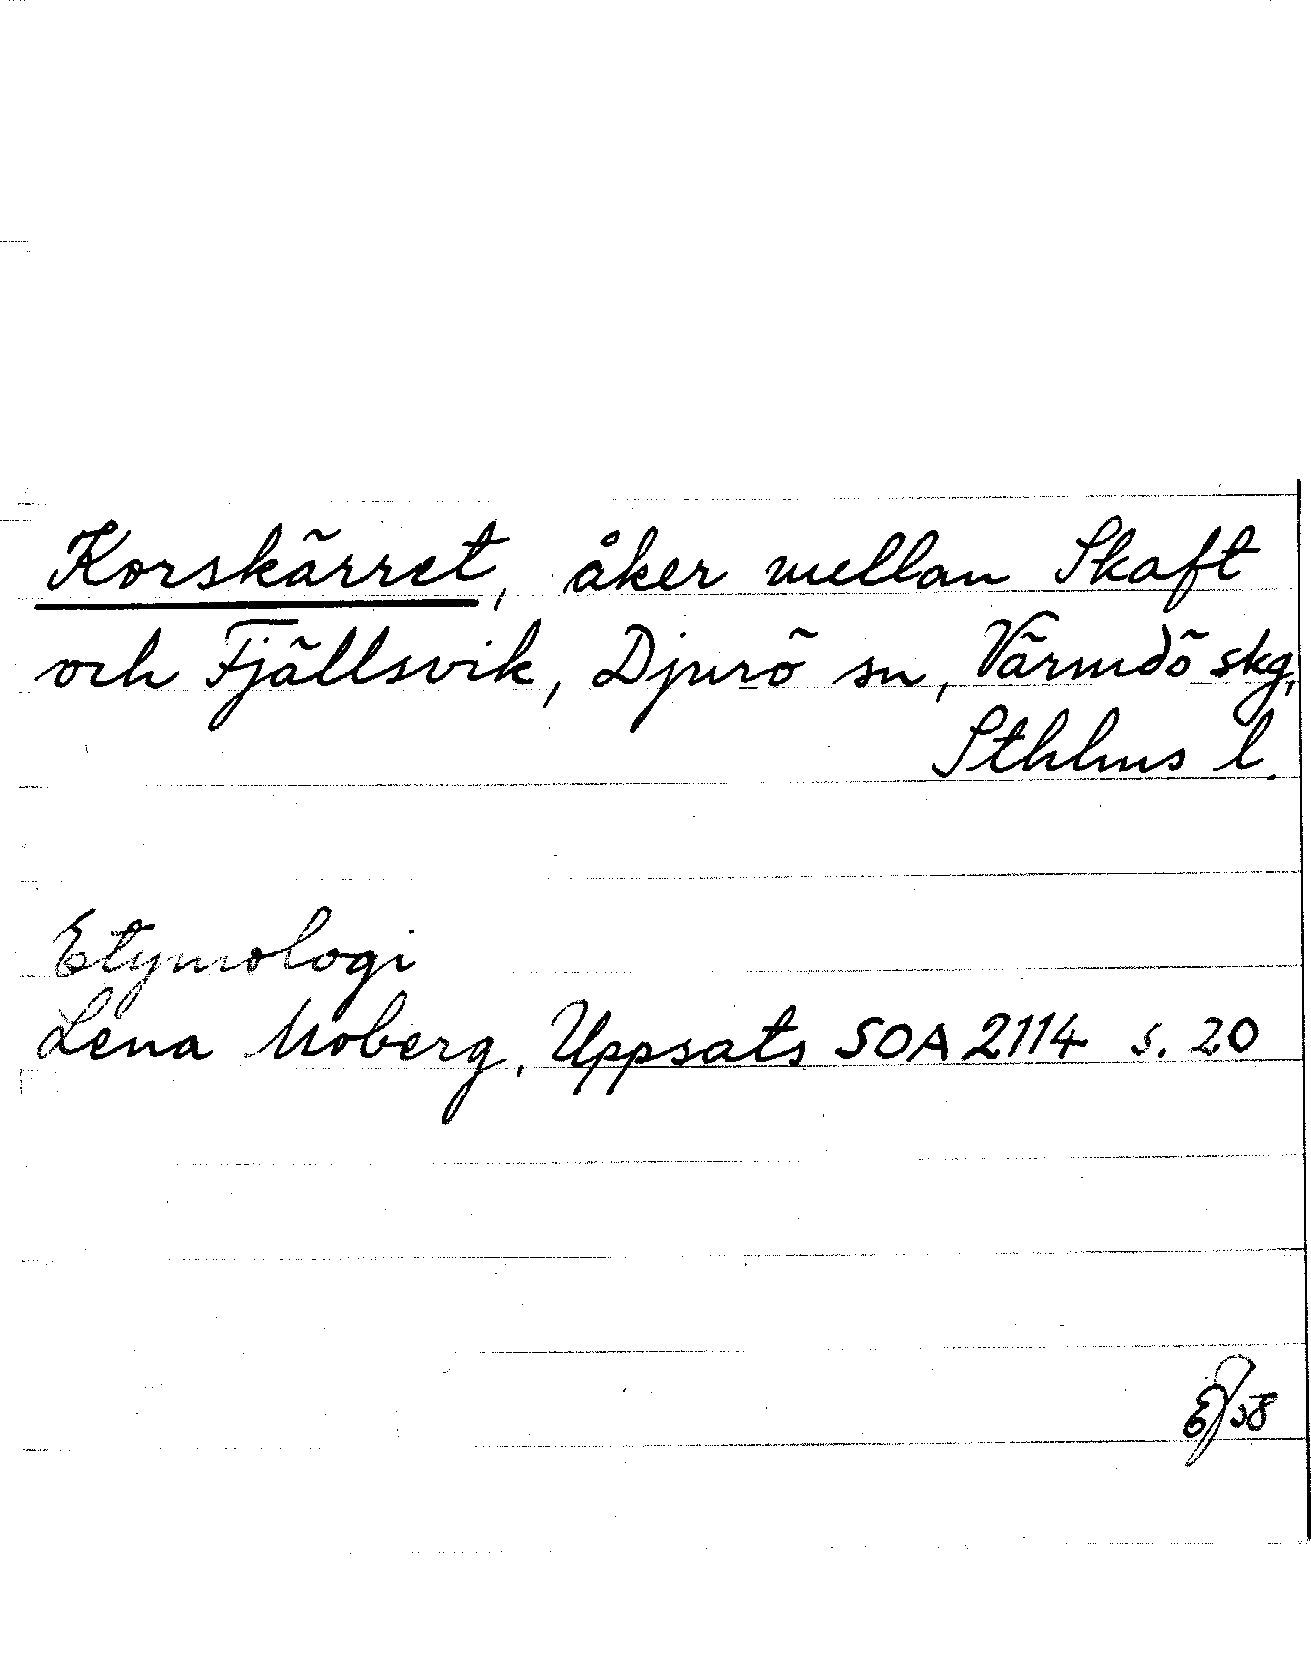 Korskärret, åker mellan Skaft
och Fjällsvik, Djurö sn, Värmdö skg,
Sthlms l.
Etymologi
Lena Moberg, Uppsats SOA 2114 s. 20